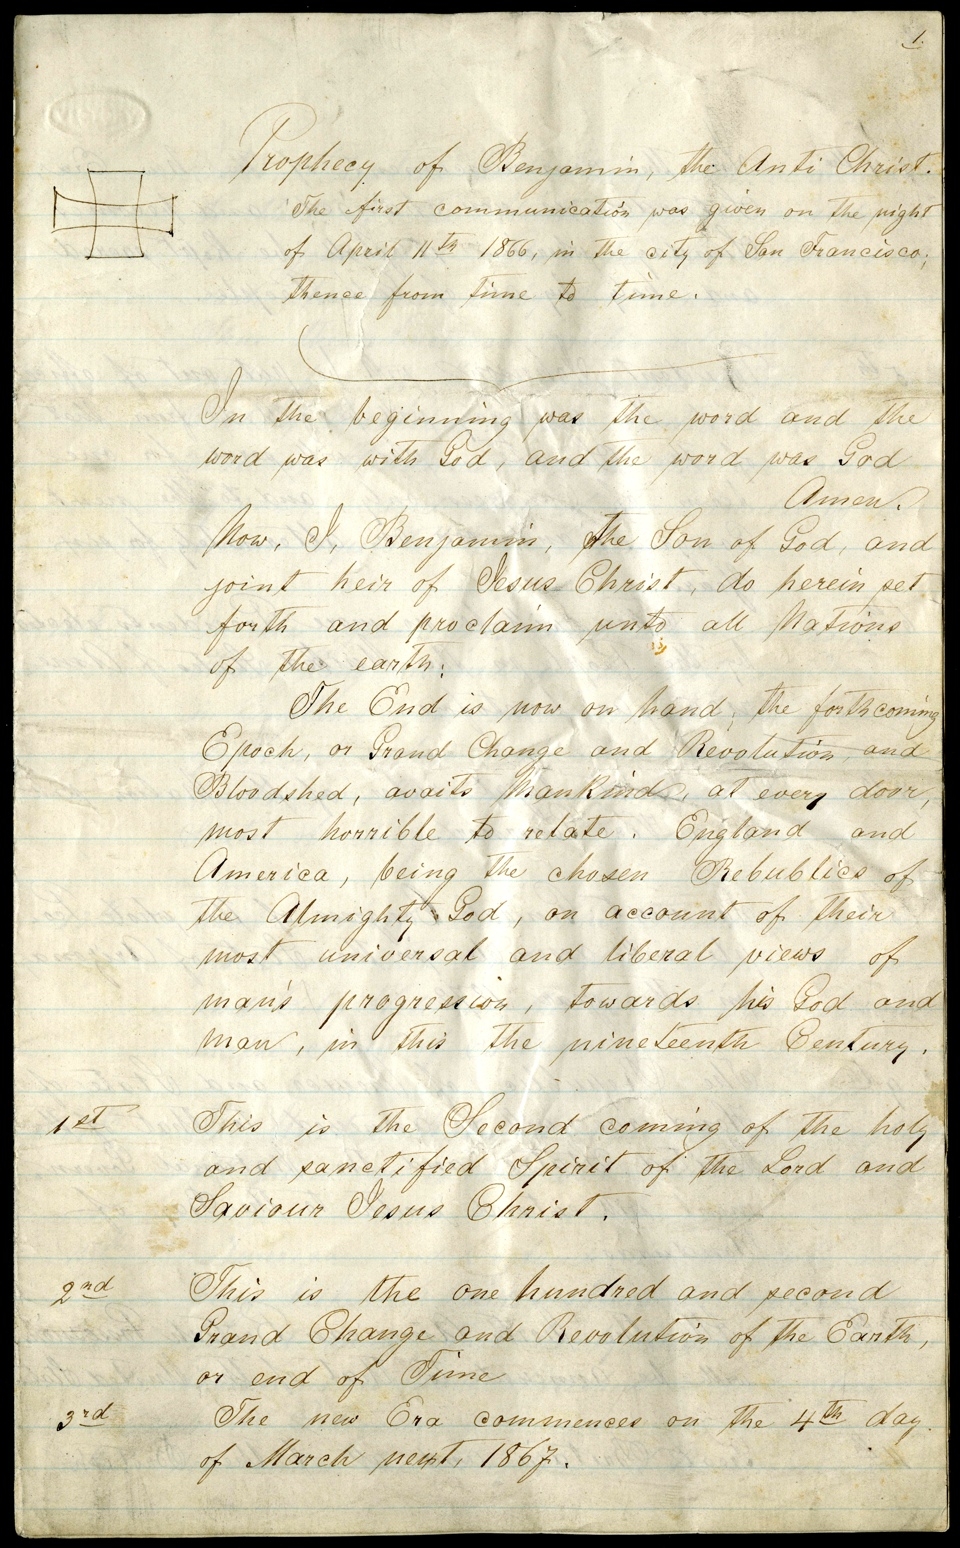 1.
Prophecy of Benjamin, the Anti Christ.
The first communication was given on the night
of April 11th 1866, in the city of San Francisco;
thence from time to time.
In the beginning was the word and the
word was with God, and the word was God
Amen.
Now, I, Benjamin, the Son of God, and
joint heir of Jesus Christ, do herein set
forth and proclaim unto all Nations
of the earth:
The End is now on hand, the forthcoming
Epoch, or Grand Change and Revolution and
Bloodshed, avaits Mankind, at every door,
most horrible to relate. England and
America, being the chosen Rebublics of
the Almighty God, on account of their
most universal and liberal views of
man's progression, towards his God and
man, in this the nineteenth Century.
1st This is the Second coming of the holy
and sanctified Spirit of the Lord and
Saviour Jesus Christ.
2nd This is the one hundred and second
Grand Change and Revolution of the Earth,
or end of Time
3rd The new Era commences on the 4th day
of March next, 1867.